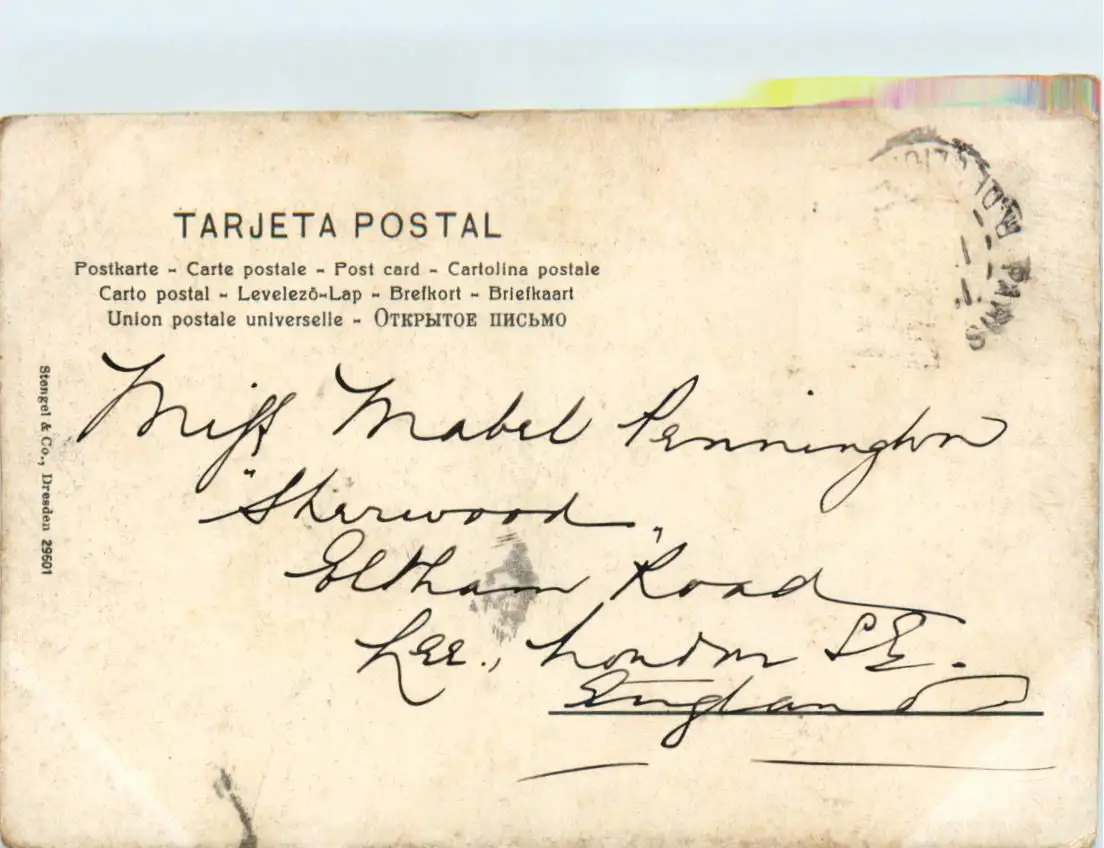 TARJETA POSTAL
Postkarte - Carte postale - Post card - Cartolina postale
Carto postal - Levelező-Lap - Brefkort - Briefkaart
Union postale universelle - Открытое письмо
Stengel & Co., Dresden 29601
PARIS
Miss Mabel Pennington
"Sherwood"
Eltham Road
Lee., London S.E.
England